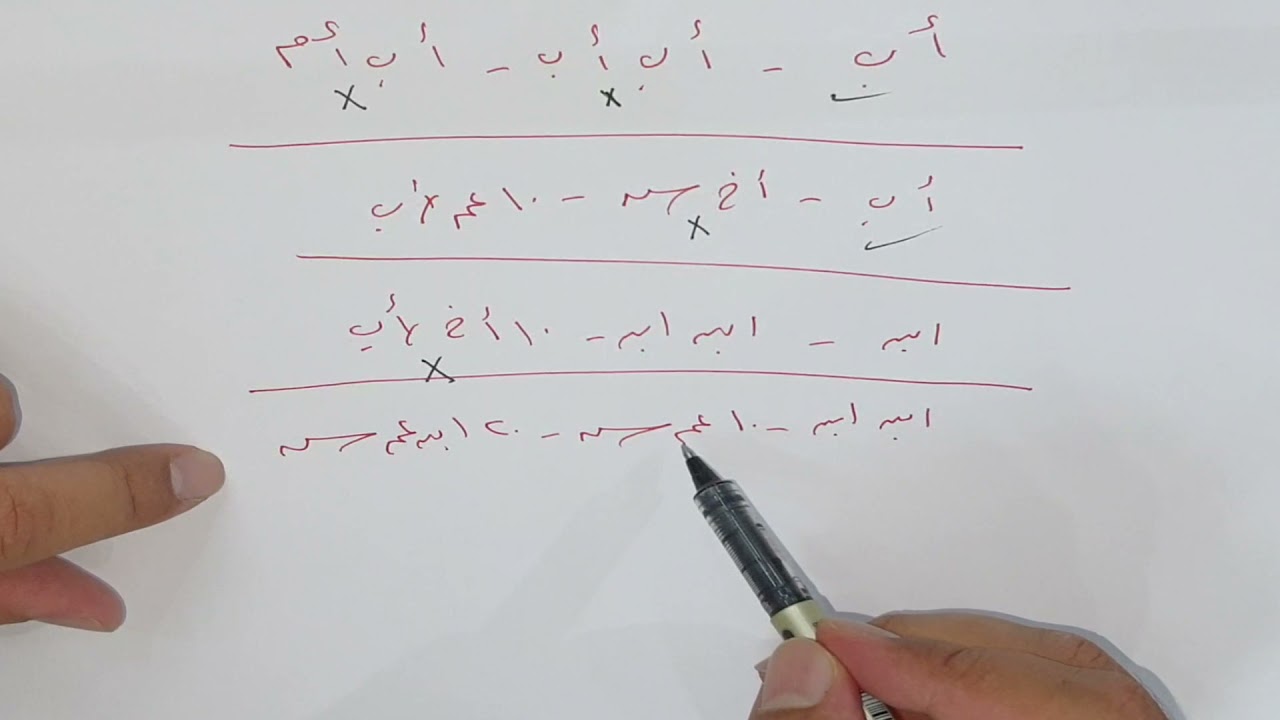 أب – أب أب – أب أم
✓ x x
أب – أخ شـ – ١٠ عم لأب
✓ x
ابن – ابن ابن – ١٠ أخ لأب
x
ابن ابن – ١٠ عم شـ – ٢٠ ابن عم شـ